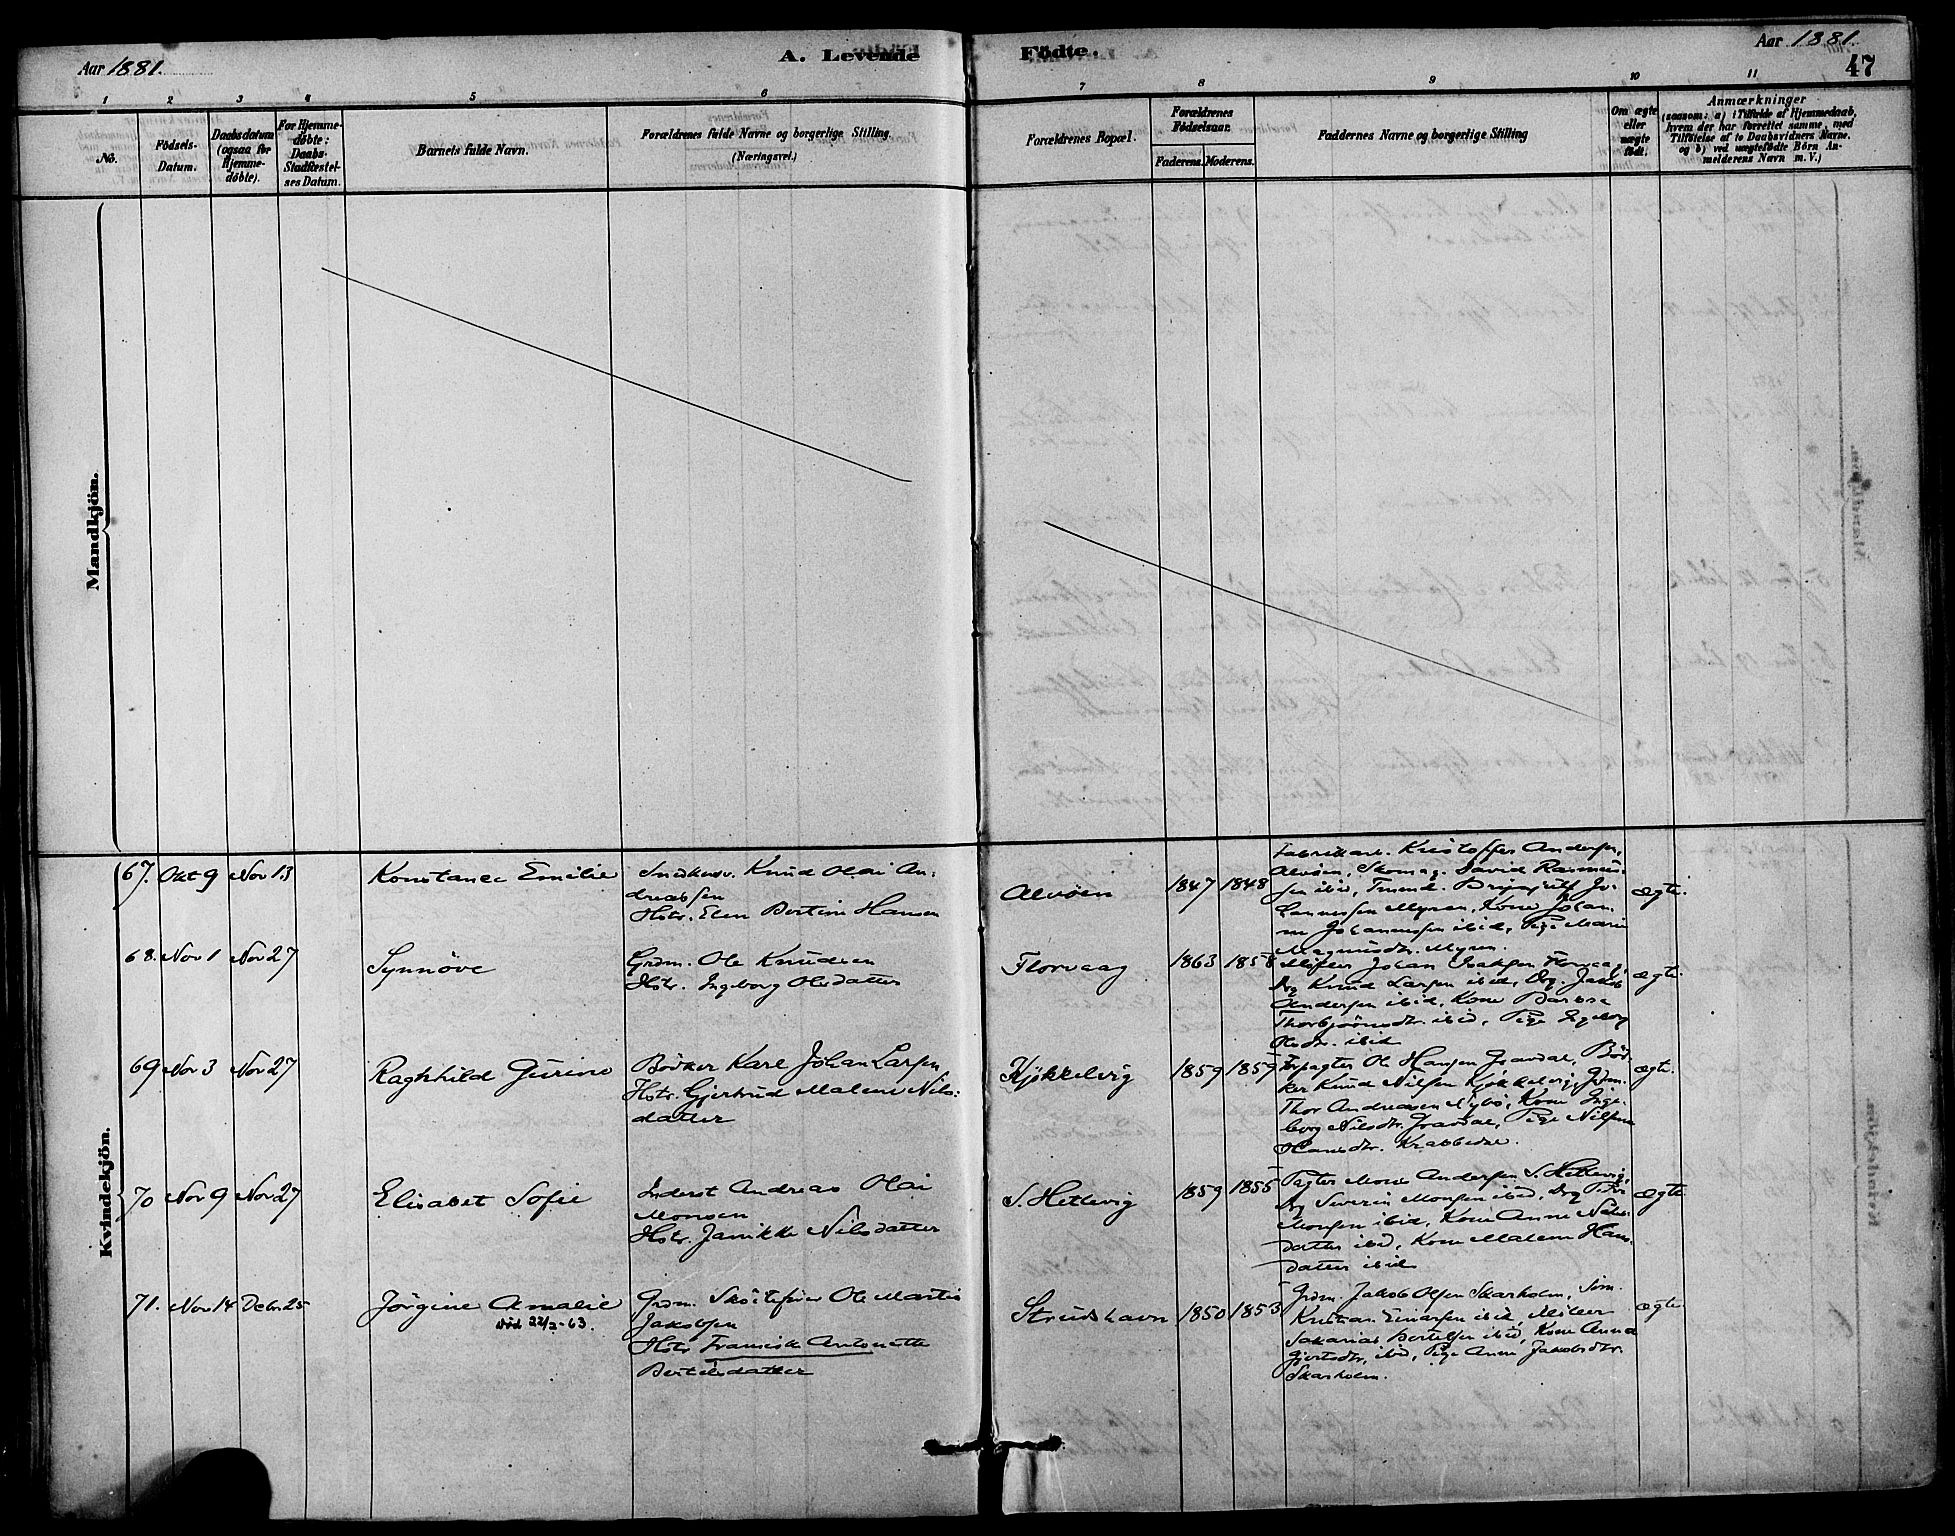 Aar 1881.
A. Levende Födte.
Aar 1881.
47
1 2 3 4 5 6 7 8 9 10 11
No.
Födsels-
Datum.
Daabsdatum
(ogsaa for
Hjemme-
døbte).
For Hjemme-
døbte:
Daabs-
Stadfæstel-
ses Datum.
Barnets fulde Navn.
Forældrenes fulde Navne og borgerlige Stilling.
(Næringsvei.)
Forældrenes Bopæl.
Forældrenes
Födselsaar.
Faderens. Moderens.
Faddernes Navne og borgerlige Stilling
Om ægte
eller
uægte
födt.
Anmærkninger
(saasom: a) i Tilfælde af Hjemmedaab,
hvem der har forrettet samme, med
Tilföielse af to Daabsvidners Navne.
og b) ved uægtefödte Börn An-
melderens Navn m. V.)
Mandkjön.
Kvindekjön.
67. Okt 9 Nov 13
Konstance Emilie
Snedkersv. Knud Olai An-
dreassen
Hstr. Elen Bertine Hansen
Alvøen
1847 1848
Fabrikarb. Kristoffer Andersen,
Alvøen, Skomag. David Rasmus-
sen ibid, Tmmd. Brynjulf Jo-
hannessen Myren, Kone Johan-
ne Johannessen ibid, Pige Marie
Magnusdtr. Myren.
ægte.
68. Nov 1 Nov 27
Synnøve
Grdm. Ole Knudsen
Hstr. Ingeborg Olsdatter
Florvaag
1863 1858
Møller Johan Isaksen Florvaag,
Drg Knud Larsen ibid, Drg. Jakob
Andersen ibid, Kone Barbra
Thorbjørnsdtr. ibid, Pige Ingeborg
Olsdtr. ibid
ægte.
69 Nov 3 Nov 27
Raghhild Gurine
Bødker Karl Johan Larsen
Hstr. Gjertrud Malene Nils-
datter
Kjøkkelvig
1859 1859
Forpagter Ole Hansen Gravdal, Bød-
ker Knud Nilsen Kjøkkelvig, Grdm.
Thor Andreassen Nybø, Kone Inge-
borg Nilsdtr. Gravdal, Pige Nilsine
Hansdtr. Krabbedal.
ægte.
70 Nov 9 Nov 27
Elisabet Sofie
Inderst Andreas Olai
Monsen
Hstr. Janikke Nilsdatter
S. Hetlevig
1859 1855
Pagter Mons Andersen S. Hetlevig,
Drg Severin Monsen ibid, Drg Peder
Monsen ibid, Kone Anne Nils-
datter ibid, Kone Malene Hans-
datter ibid
ægte.
71. Nov 14 Debr. 25
Jørgine Amalie
død 22/2-63.
Grdm. Skøitefører Ole Martin
Jakobsen
Hstr Fransisk Antonette
Bertelsdatter
Strudshavn
1850 1853
Grdm. Jakob Olsen Skarholm, Søm.
Kristian Einarsen ibid, Møller
Sakarias Bertelsen ibid, Kone Anna
Gjertsdtr. ibid, Pige Anne Jakobsdtr.
Skarholm.
ægte.